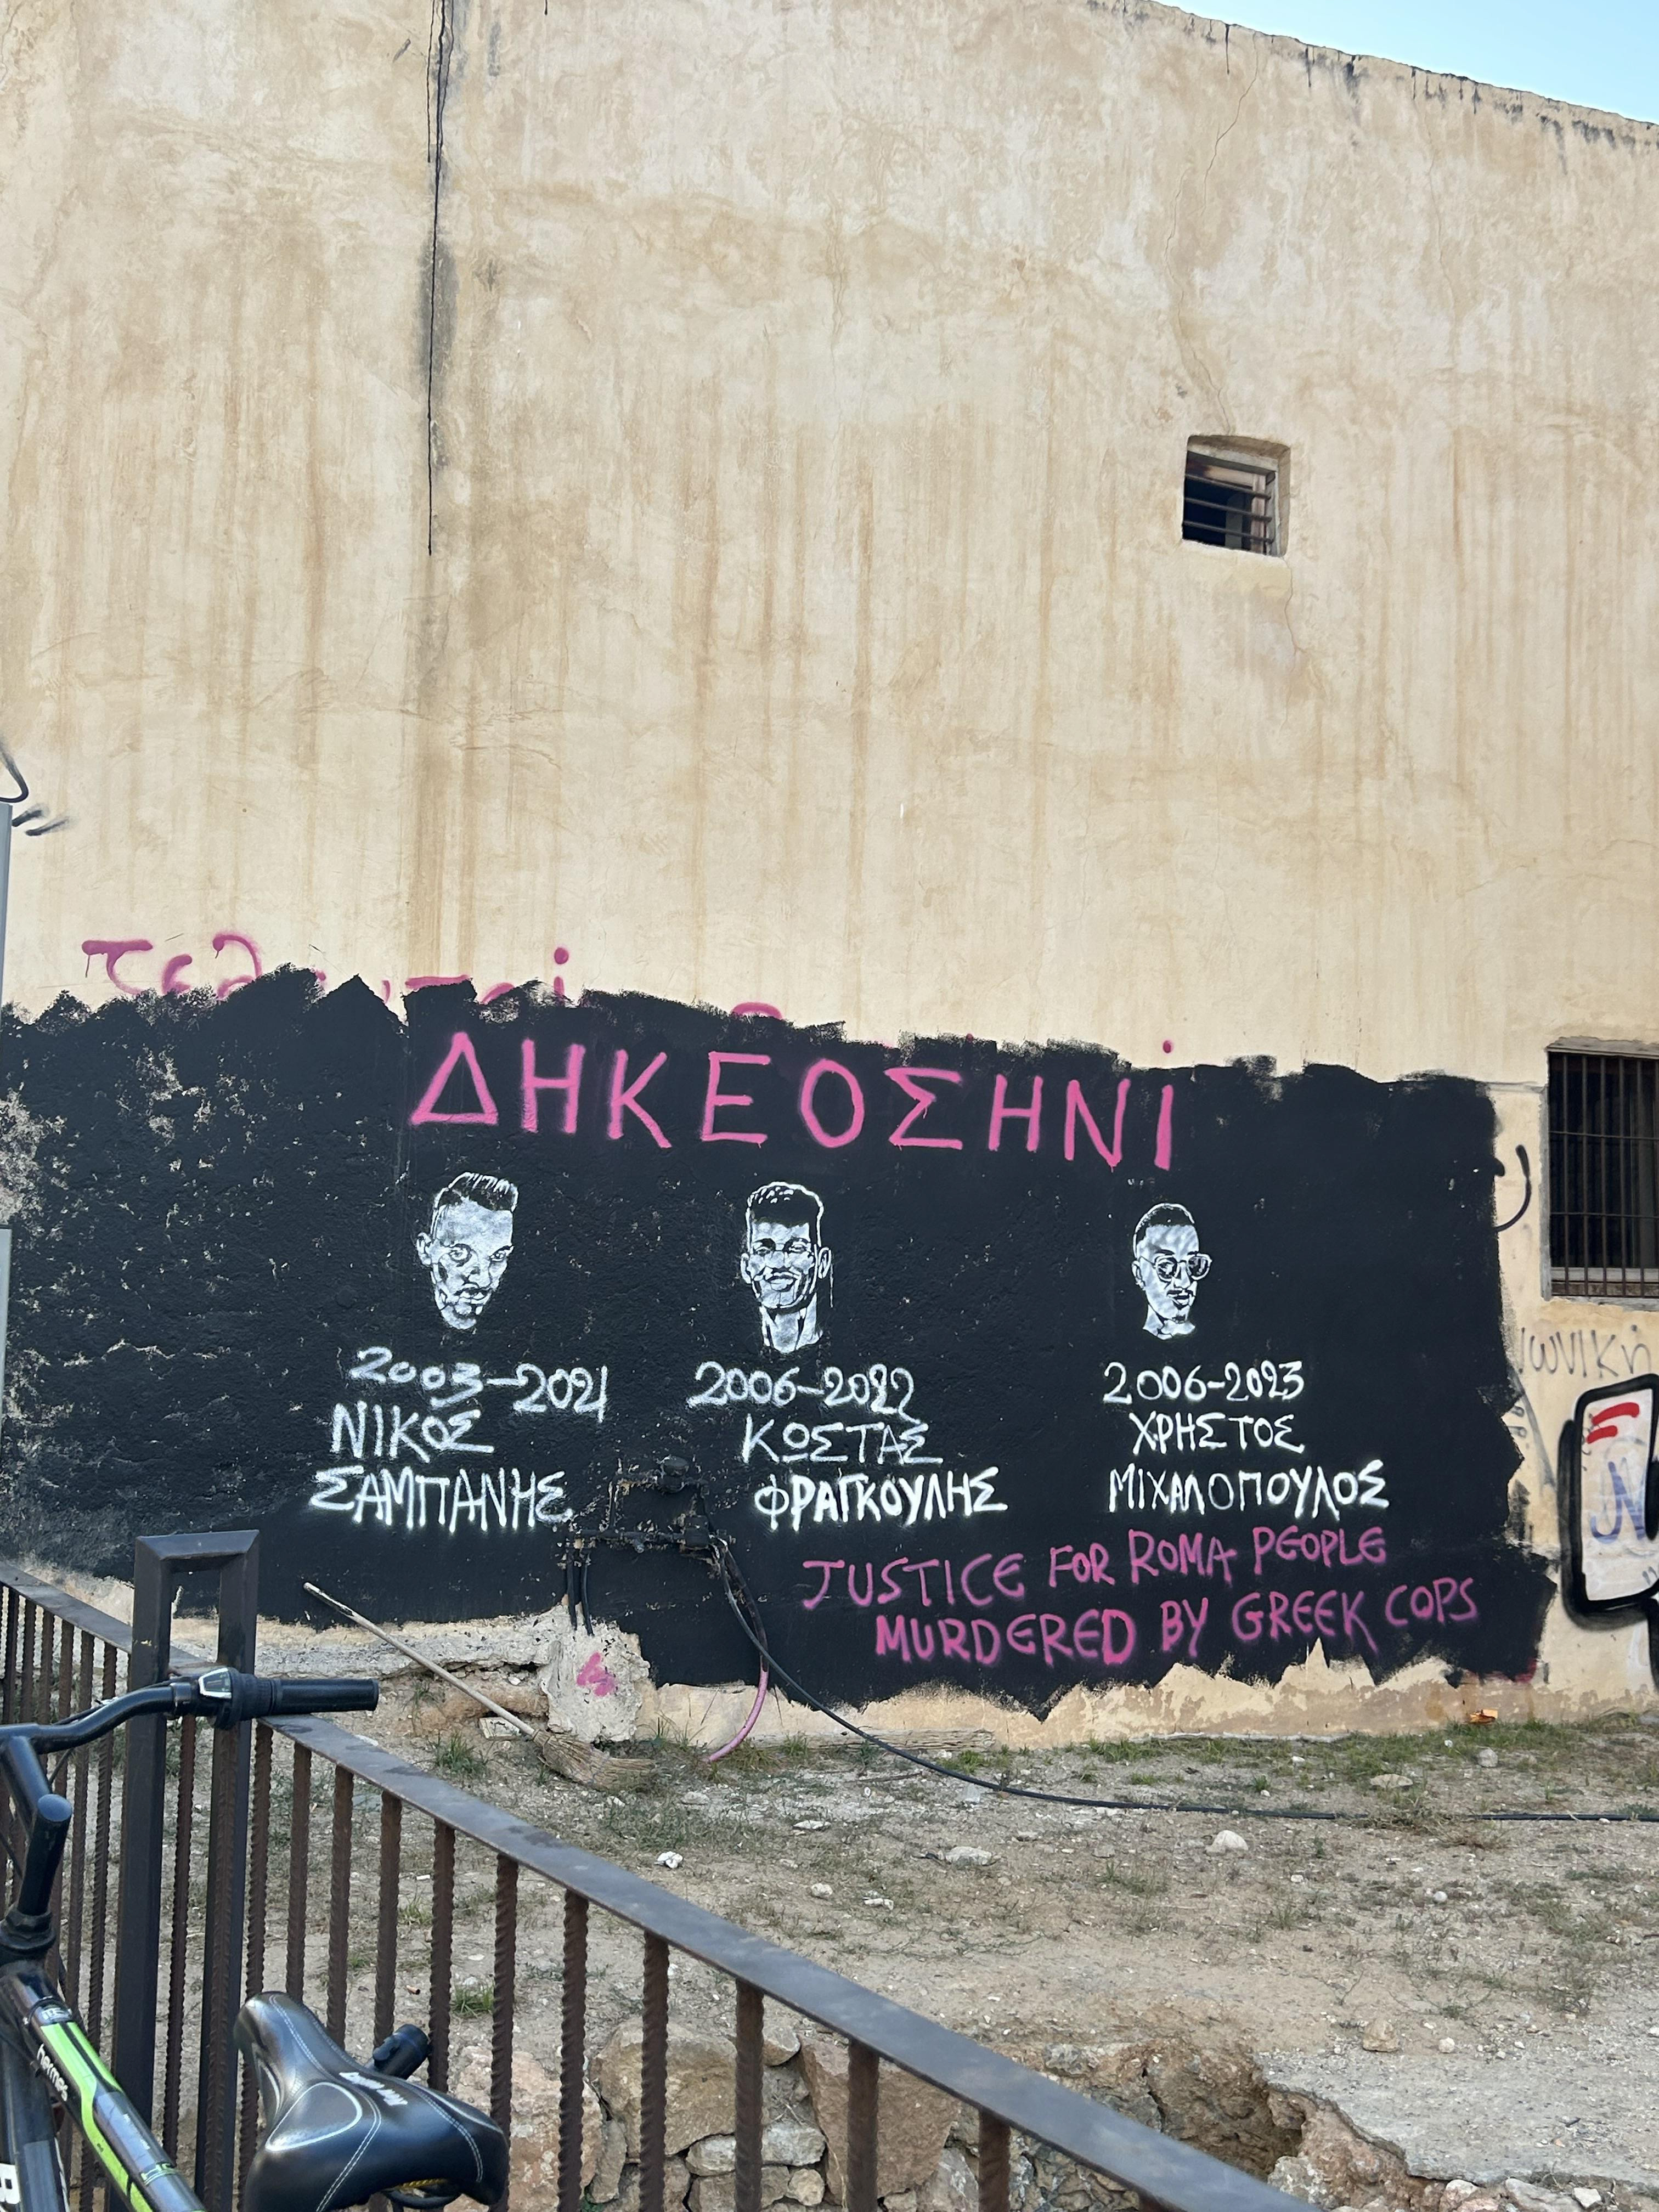 ΔΗΚΕΟΣΗΝΙ
2003-2021
ΝΙΚΟΣ
ΣΑΜΠΑΝΗΣ
2006-2022
ΚΩΣΤΑΣ
ΦΡΑΓΚΟΥΛΗΣ
2006-2023
ΧΡΗΣΤΟΣ
ΜΙΧΑΛΟΠΟΥΛΟΣ
JUSTICE FOR ROMA PEOPLE
MURDERED BY GREEK COPS
hermes